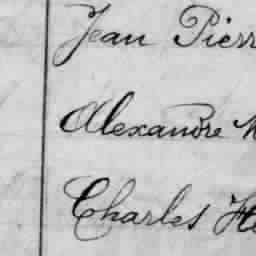 Jean Pierr
Alexandre
Charles He